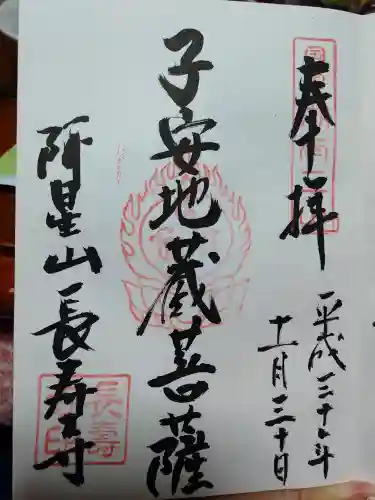 奉拝
平成二十七年
十一月三十日
子安地蔵菩薩
阿星山長寿寺
長壽